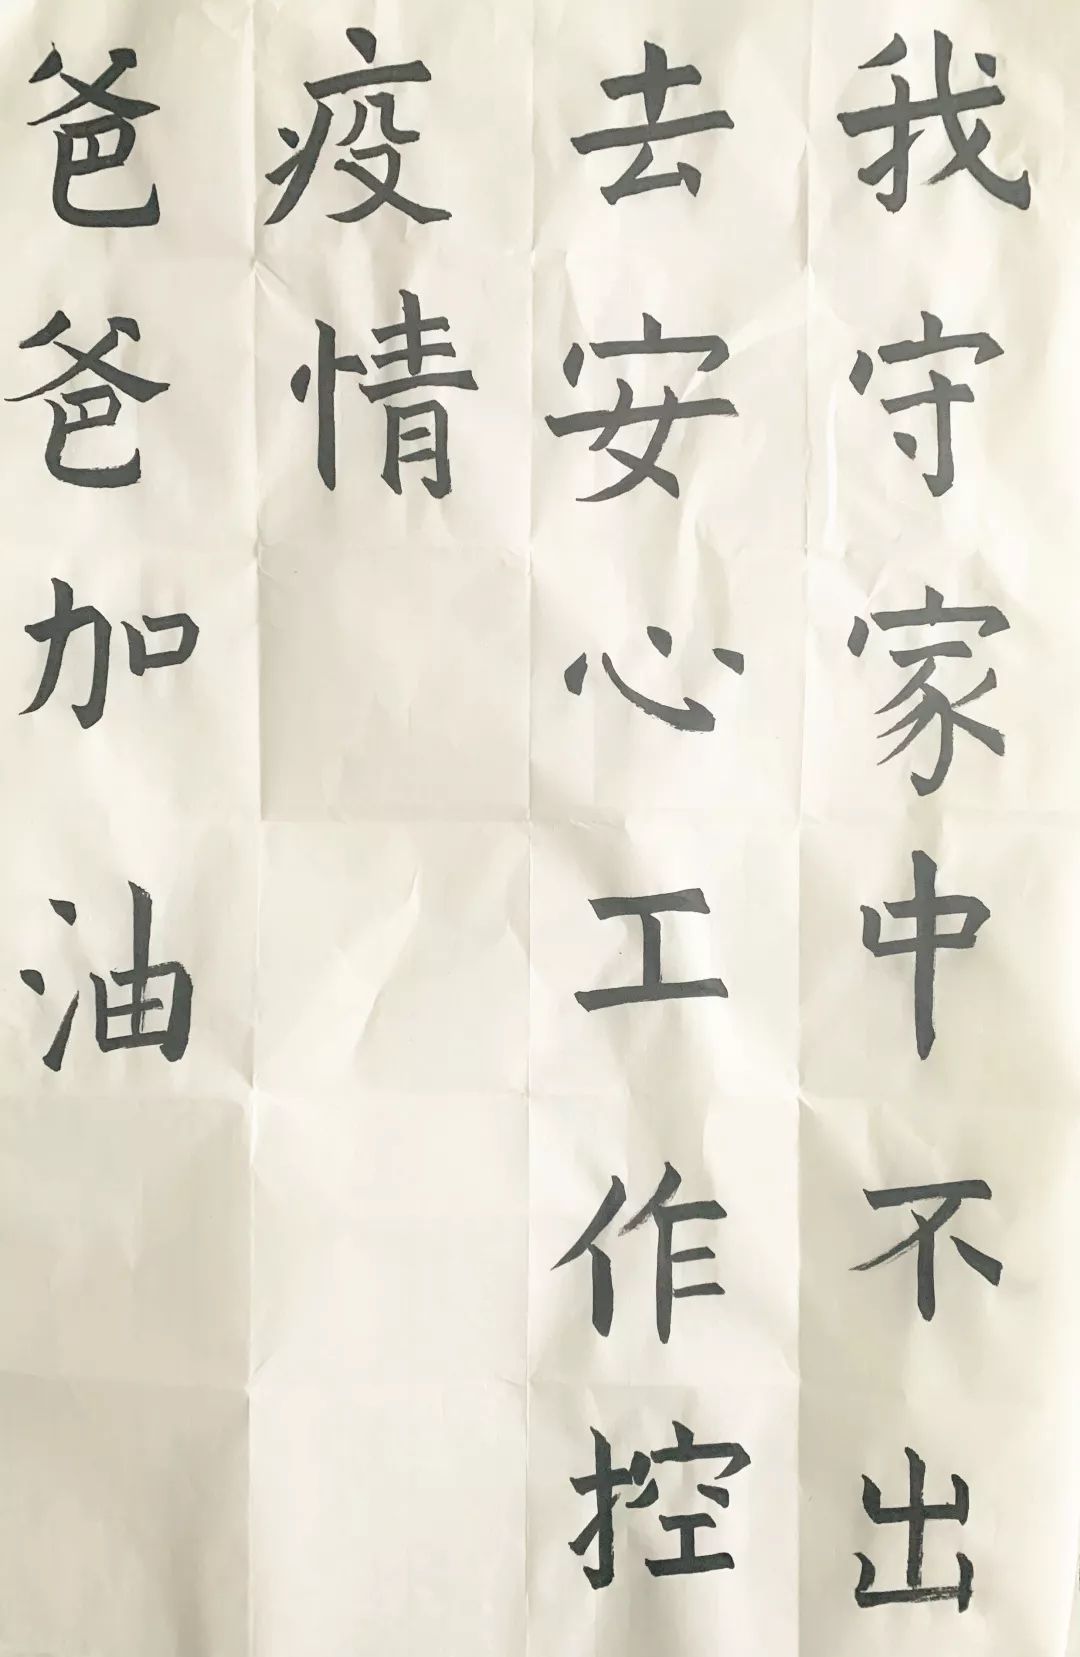 我守家中不出
去安心工作控
疫情
爸爸加油